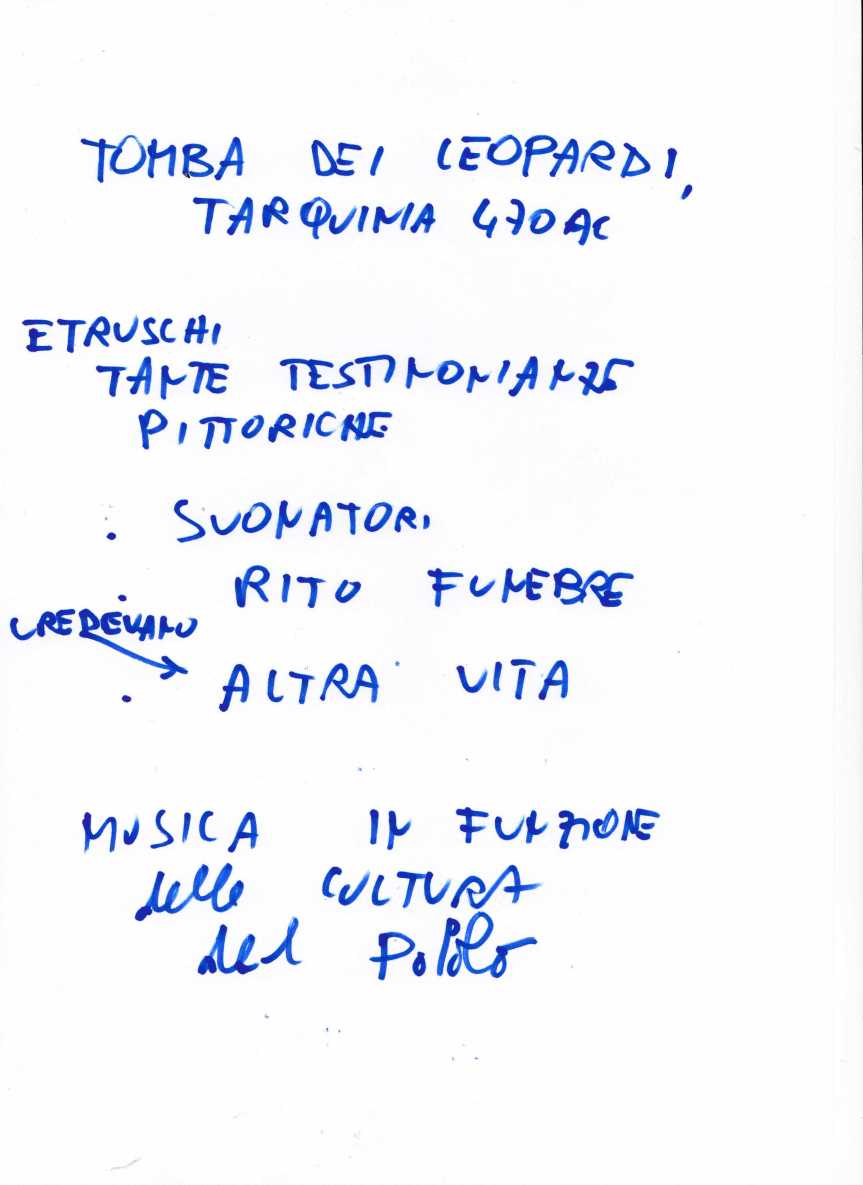 TOMBA DEI LEOPARDI,
TARQUINIA 470 AC
ETRUSCHI
TANTE TESTIMONIANZE
PITTORICHE
. SUONATORI
. RITO FUNEBRE
CREDEVANO
. ALTRA VITA
MUSICA IN FUNZIONE
delle CULTURA
del POPOLO